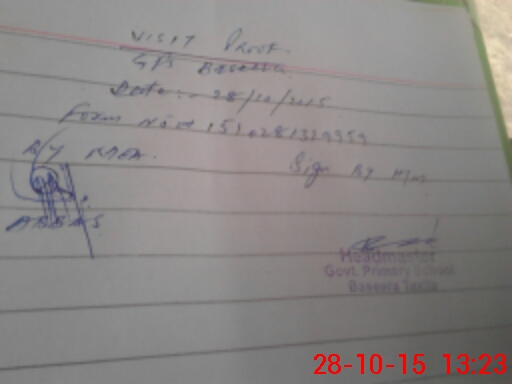 VISIT Proof.
GPS Baseera
Date:- 28/10/2015
Form No #
BY MEA.
Sign By H/M
ABBAS
Headmaster
Govt. Primary School
Baseera Taxila
28-10-15 13:23